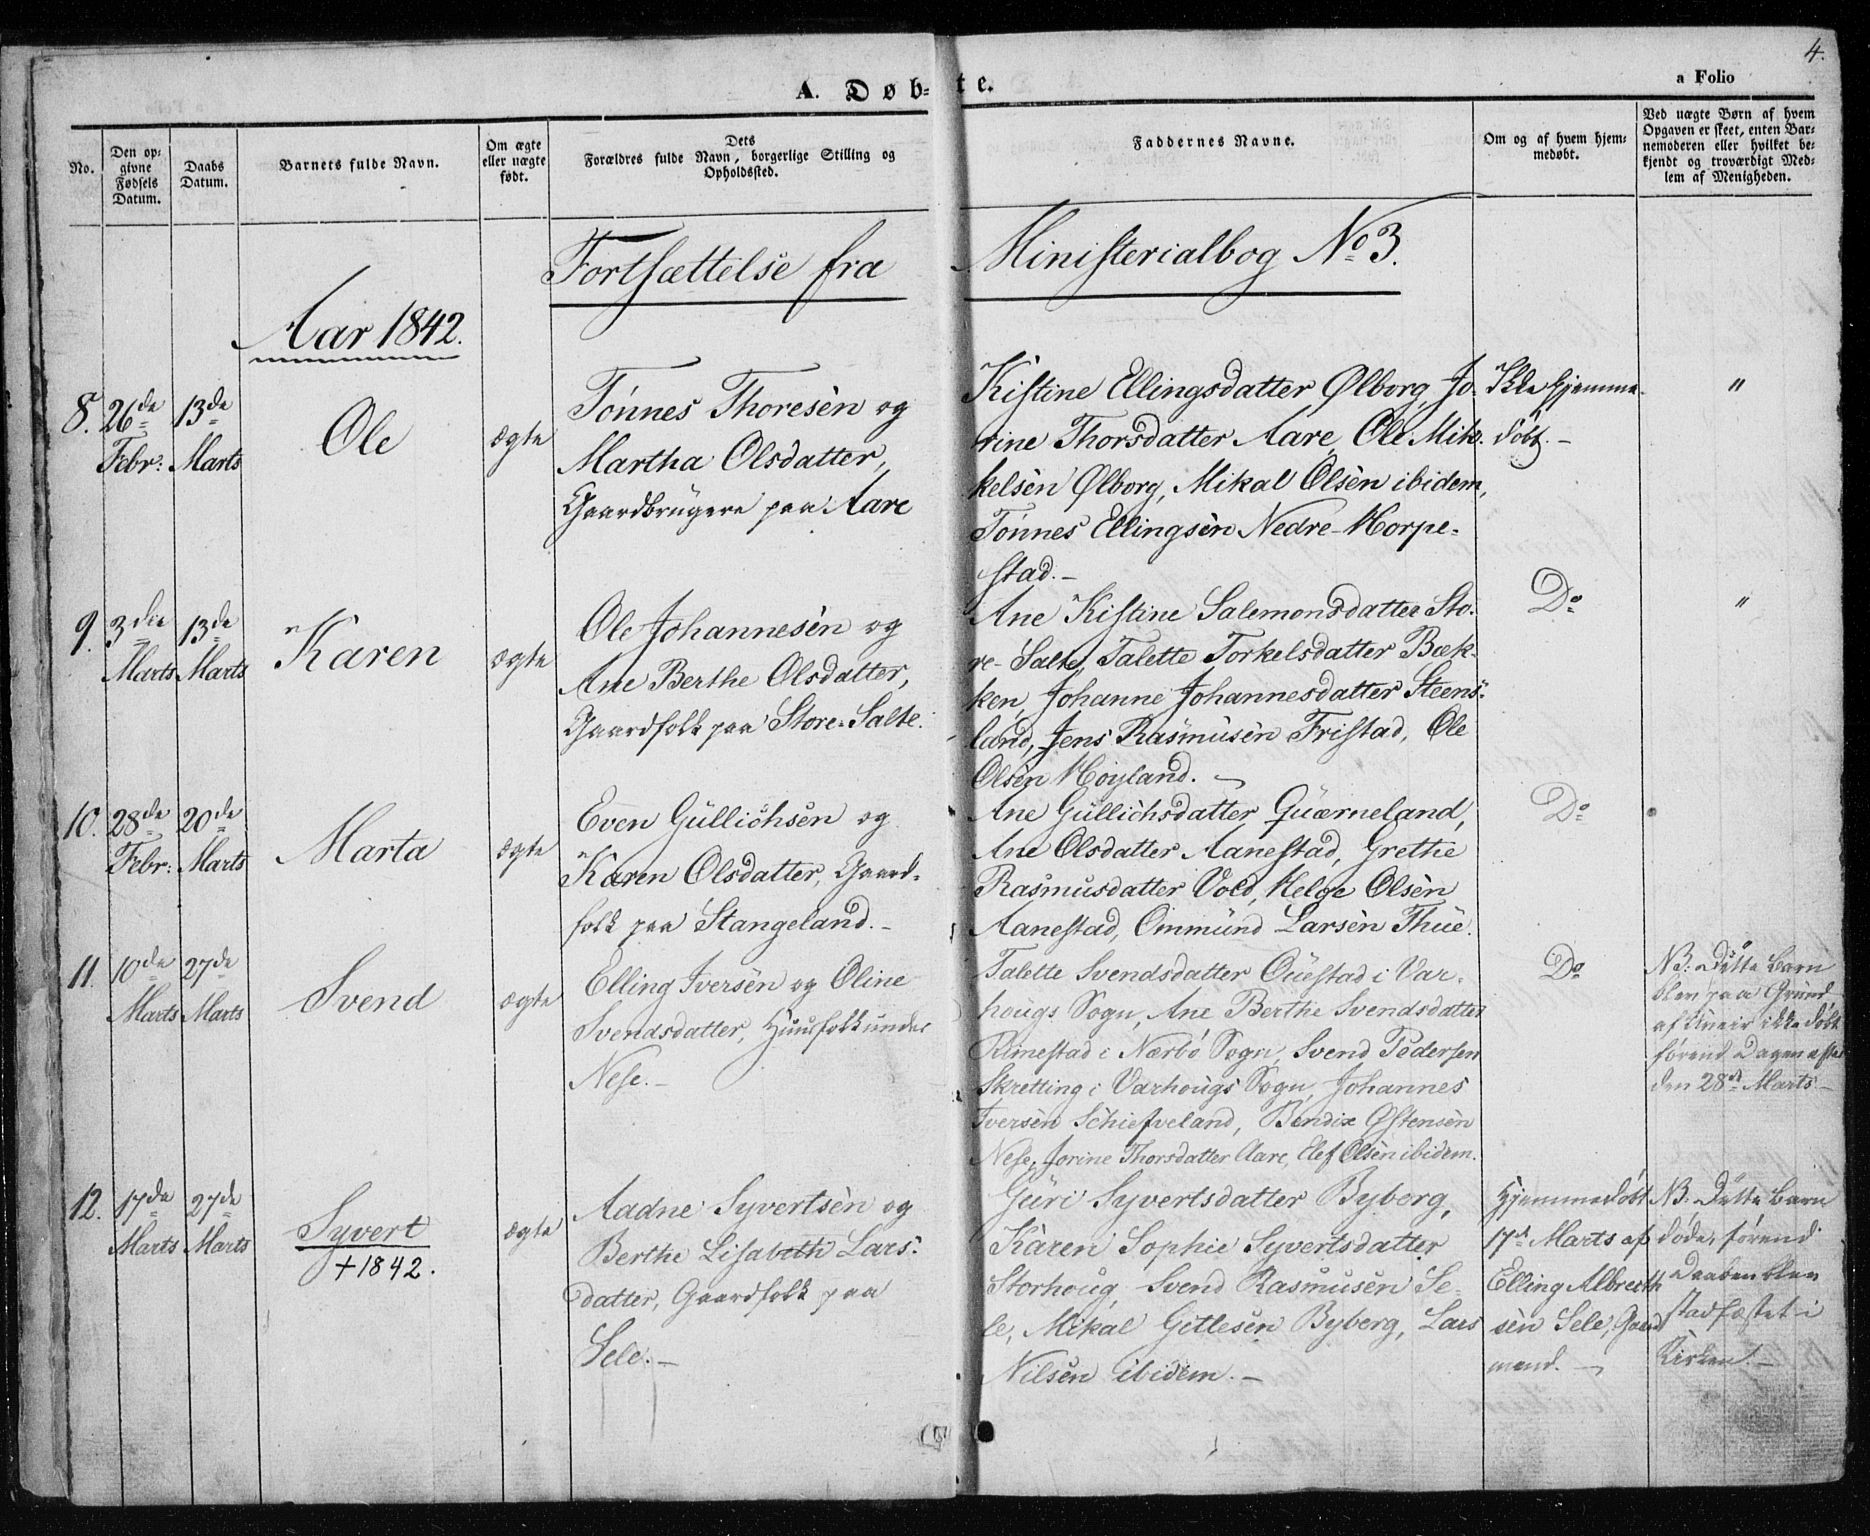 4.
A. Døb-te.
a Folio
No.
Den op-
givne
Fødsels
Datum.
Daabs
Datum.
Barnets fulde Navn.
Om ægte
eller uægte
født.
Dets
Forældres fulde Navn, borgerlige Stilling og
Opholdssted.
Faddernes Navne.
Om og af hvem hjem-
medøbt.
Ved uægte Børn af hvem
Opgaven er skeet, enten Bar-
nemoderen eller hvilket be-
kjendt og troværdigt Med-
lem af Menigheden.
Fortsættelse fra Ministerialbog No 3.
Aar 1842.
8.
26de
Febr:
13de
Marts
Ole
ægte
Tönnes Thoresen og
Martha Olsdatter,
Gaardbrugere paa Aare
Kistine Ellingsdatter Ølborg, Jo-
rine Thorsdatter Aare, Ole Mik-
kelsen Ølborg, Mikal Olsen ibidem,
Tönnes Ellingsen Nedre-Horpe-
stad.-
Ikke hjemme-
døbt.-
"
9.
3die
Marts
13de
Marts
Karen
ægte
Ole Johannesen og
Ane Berthe Olsdatter,
Gaardfolk paa Store-Salte.
Ane Kistine Salemonsdatter Sto-
re-Salte, Talette Torkelsdatter Bæk-
ken, Johanne Johannesdatter Steens-
land, Jens Rasmusen Fristad, Ole
Olsen Høyland.-
Do
"
10.
28de
Febr:
20de
Marts
Marta
ægte
Even Gullichsen og
Karen Olsdatter, Gaard-
folk paa Stangeland.-
Ane Gullichsdatter Quærneland,
Ane Olsdatter Aanestad, Grethe
Rasmusdatter Vold, Helge Olsen
Aanestad, Ommund Larsen Thue.
Do
11.
10de
Marts
27de
Marts
Svend
ægte
Elling Iversen og Oline
Svendsdatter, Huusfolk under
Nese.-
Talette Svendsdatter Ouestad i Var-
hougs Sogn, Ane Berthe Svendsdatter
Rimestad i Nærbö Sogn, Svend Pedersen
Skretting i Varhougs Sogn, Johannes
Iversen Schiefveland, Bendix Østensen
Nese, Jorine Thorsdatter Aare, Elef Olsen ibidem.
Do
NB: Dette Barn
blev paa Grund
af Uveir ikke døbt
förend Dagen efter
den 28de Marts-
12.
17de
Marts
27de
Marts
Syvert
+1842.
ægte
Aadne Syvertsen og
Berthe Lisabeth Lars-
datter, Gaardfolk paa
Sele.-
Guri Syvertsdatter Byberg,
Karen Sophie Syvertsdatter
Storhoug, Svend Rasmusen Se-
le, Mikal Gitlesen Byberg, Lars
Nilsen ibidem.-
Hjemmedøbt
17de Marts af
Elling Albrecth
sen Sele, Gaard
mand.-
NB. Dette Barn
døde, förend
Daaben blev
stadfæstet i
Kirken.-